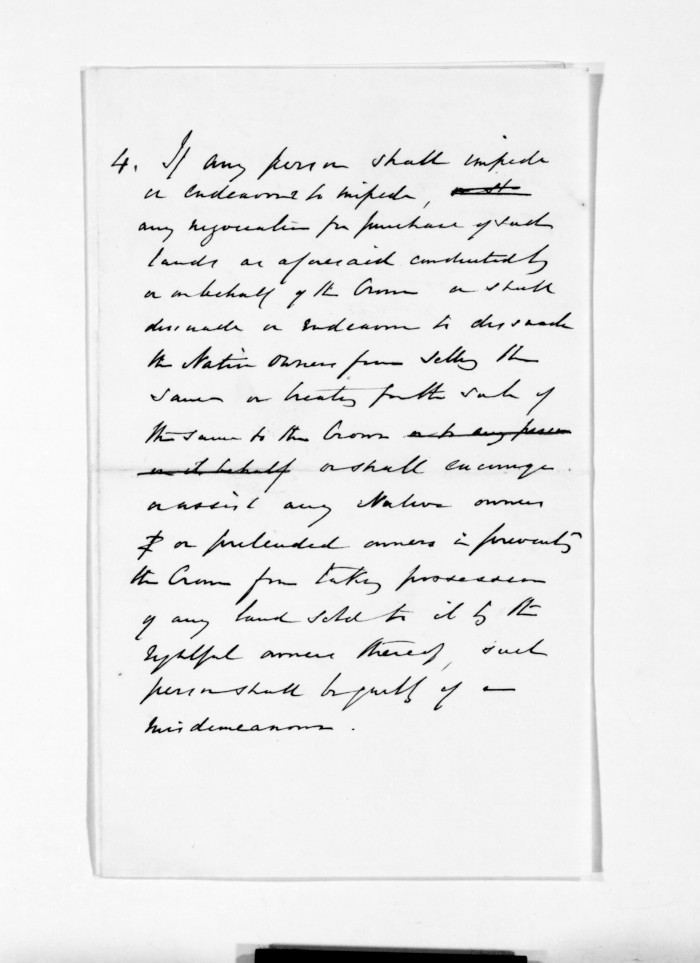 4. If any person shall impede
or endeavour to impede, or sh
any negociation for purchase of such
lands as aforesaid conducted by
or on behalf of the Crown or shall
dissuade or endeavour to dissuade
the Native owners from selling the
same or treating for the sale of
the same to the Crown or to any person
on its behalf or shall encourage
or assist any Native owners
or pretended owners in preventing
the Crown from taking possession
of any land sold to it by the
rightful owners thereof, such
person shall be guilty of a
misdemeanour.